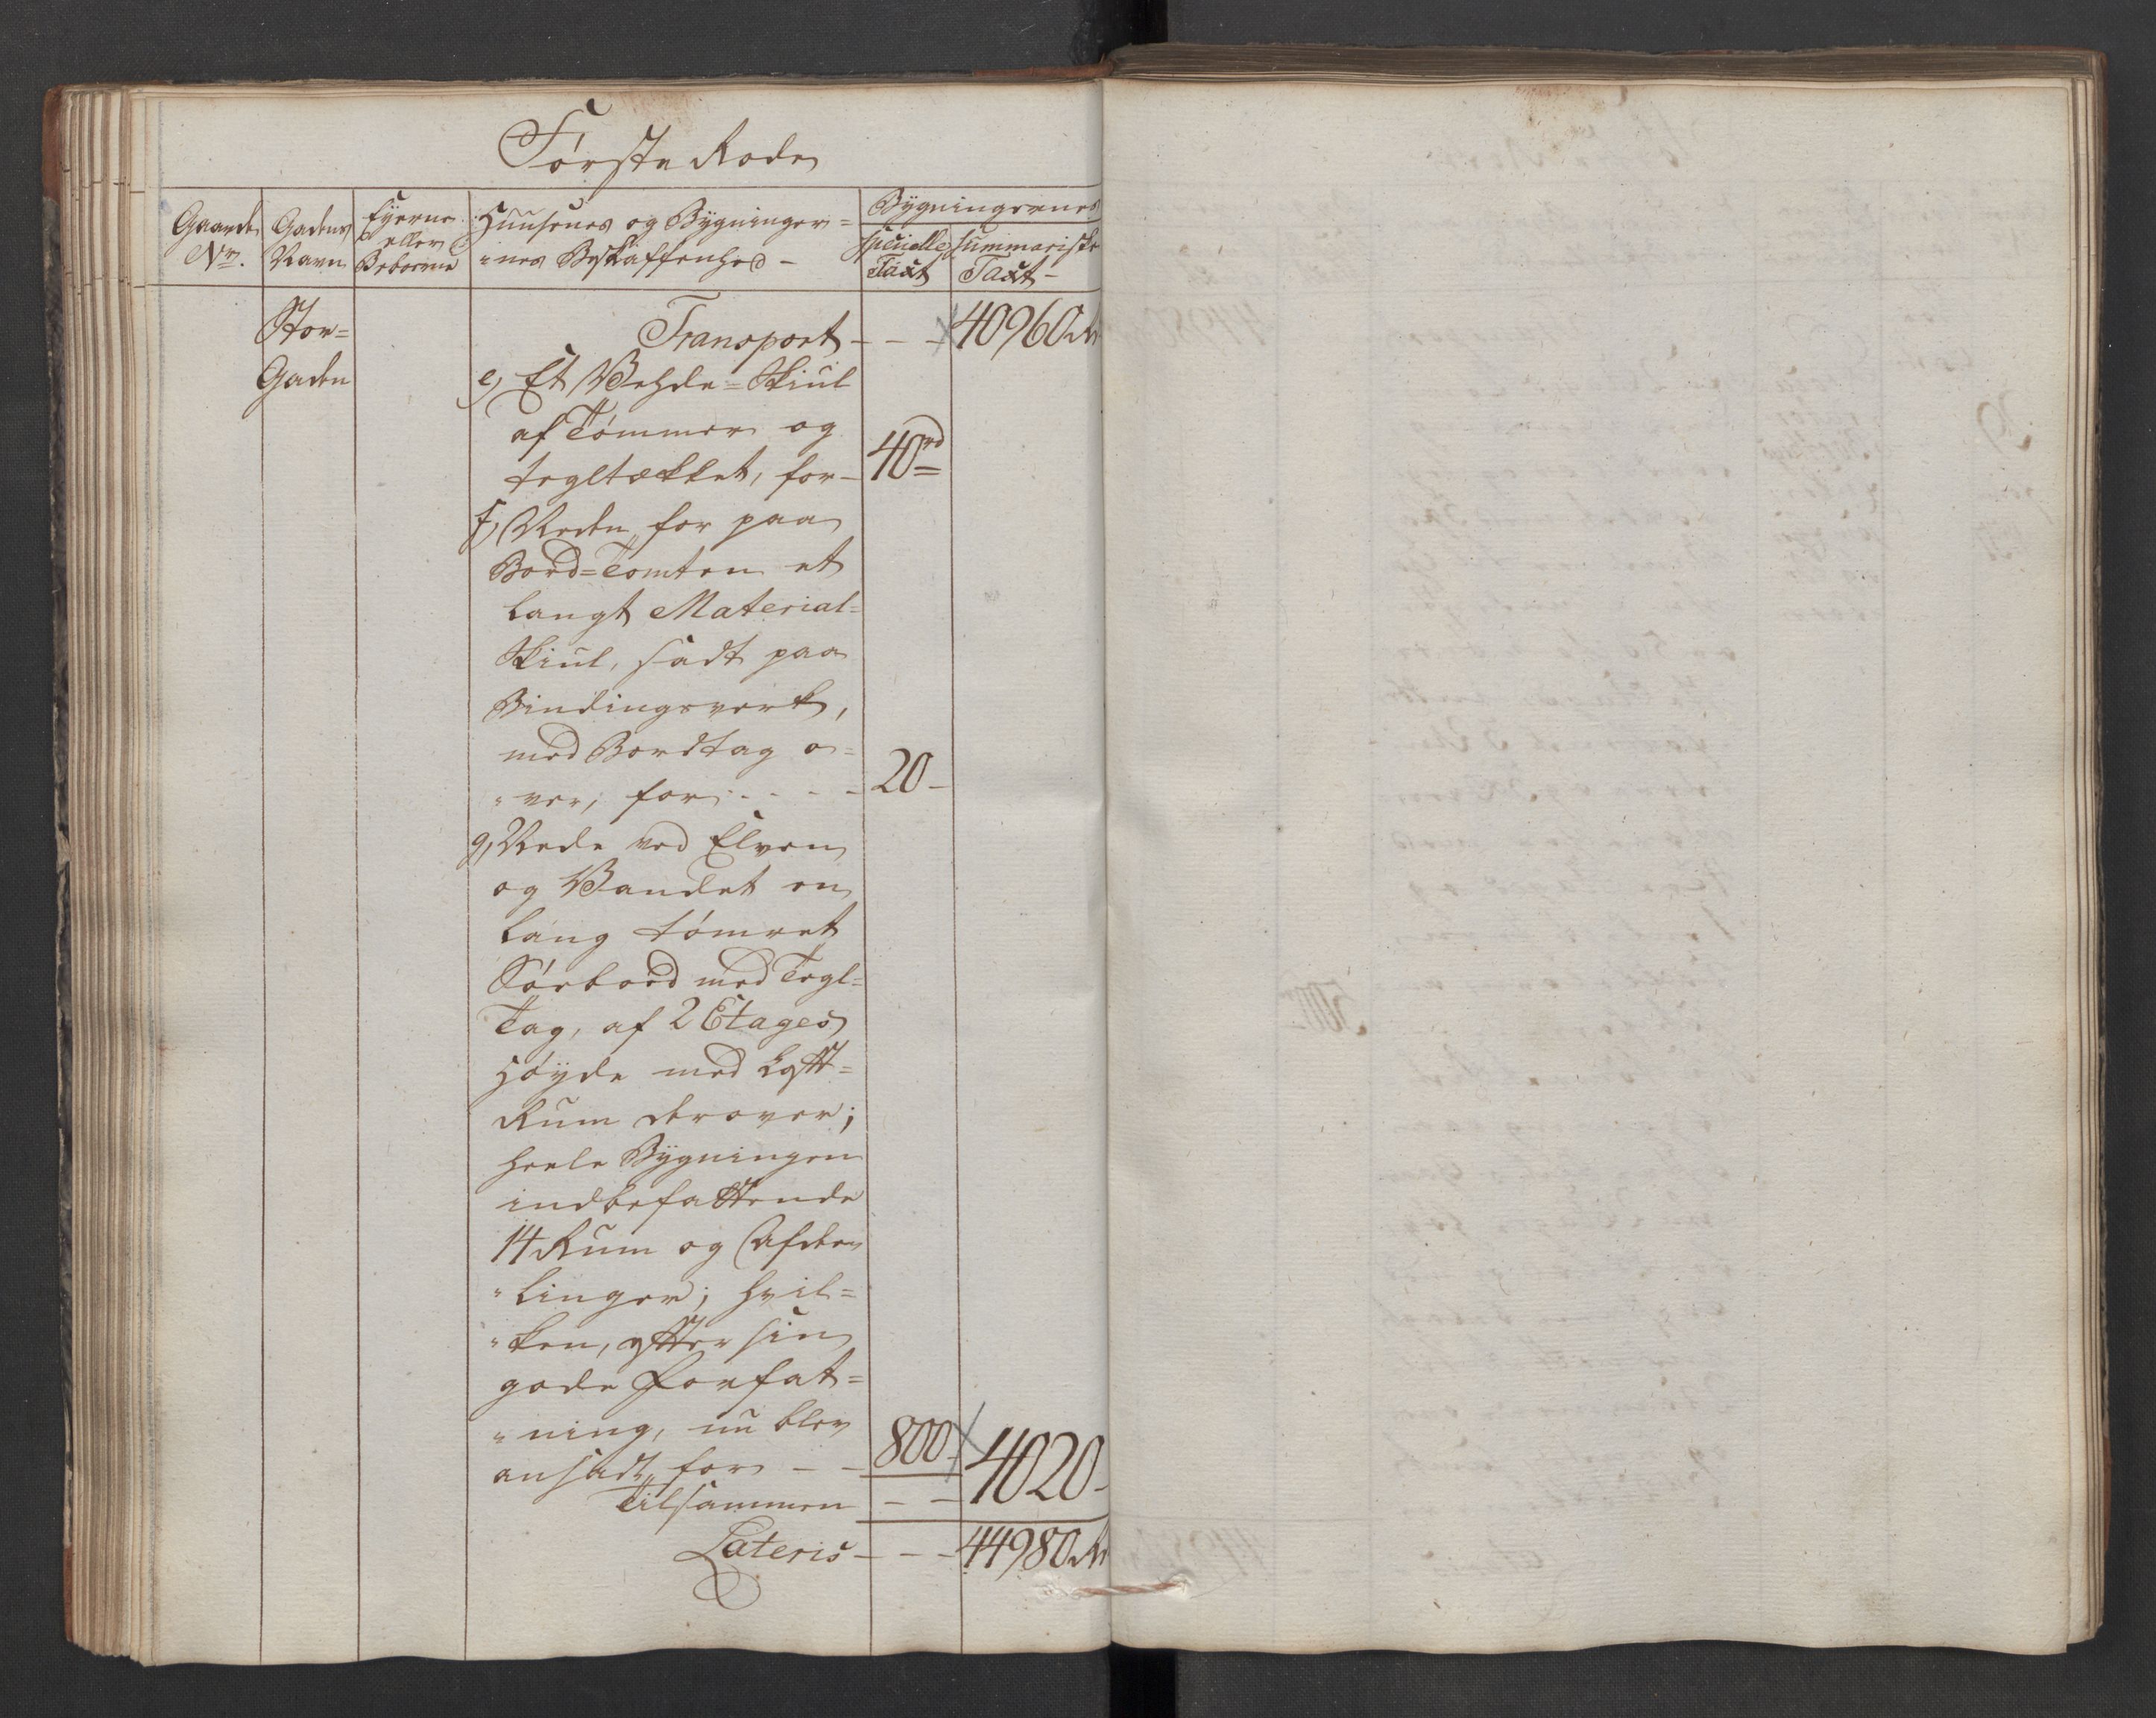 Første Rode
Gaarde Nr.
Gadens Navn
Eyerne eller Beboerne
Huusenes og Bygninger=
=nes Beskaffenhed -
Bygningernes
specielle Taxt
summariske Taxt -
Stor=
Gaden
Transport - - - 40960 Rd
e, Et Vehde=Skiul
af Tømmer og
tegltækket, for - 40rd
f, Neden for paa
Bord=Tomten et
langt Material=
Skiul, sadt paa
Bindingsverk,
med Bordtag o=
=ver, for - - - - 20 -
g, Nede ved Elven
og Vandet en
lang tømret
Søebord med Tegl=
Tag, af 2 Etages
Høyde med Loft=
Rum derover;
heele Bygningen
indbefattende
14 Rum og Afdee
=linger; hvil=
=ken, efter sin
gode Forfat=
=ning, nu blev
ansadt for - - 800 -
Tilsammen - - 4020 -
Lateris - - - 44980 Rd